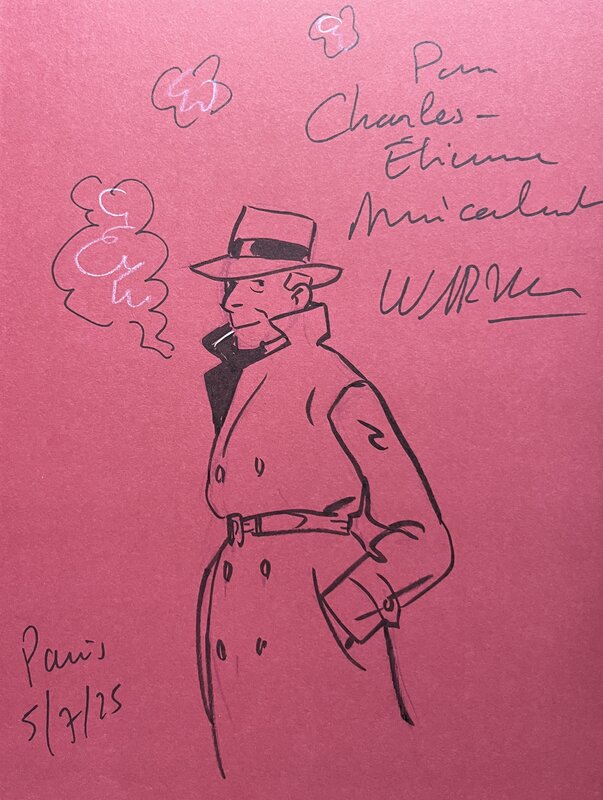 Pour
Charles-
Étienne
Amicalement
WARN
Paris
5/7/25